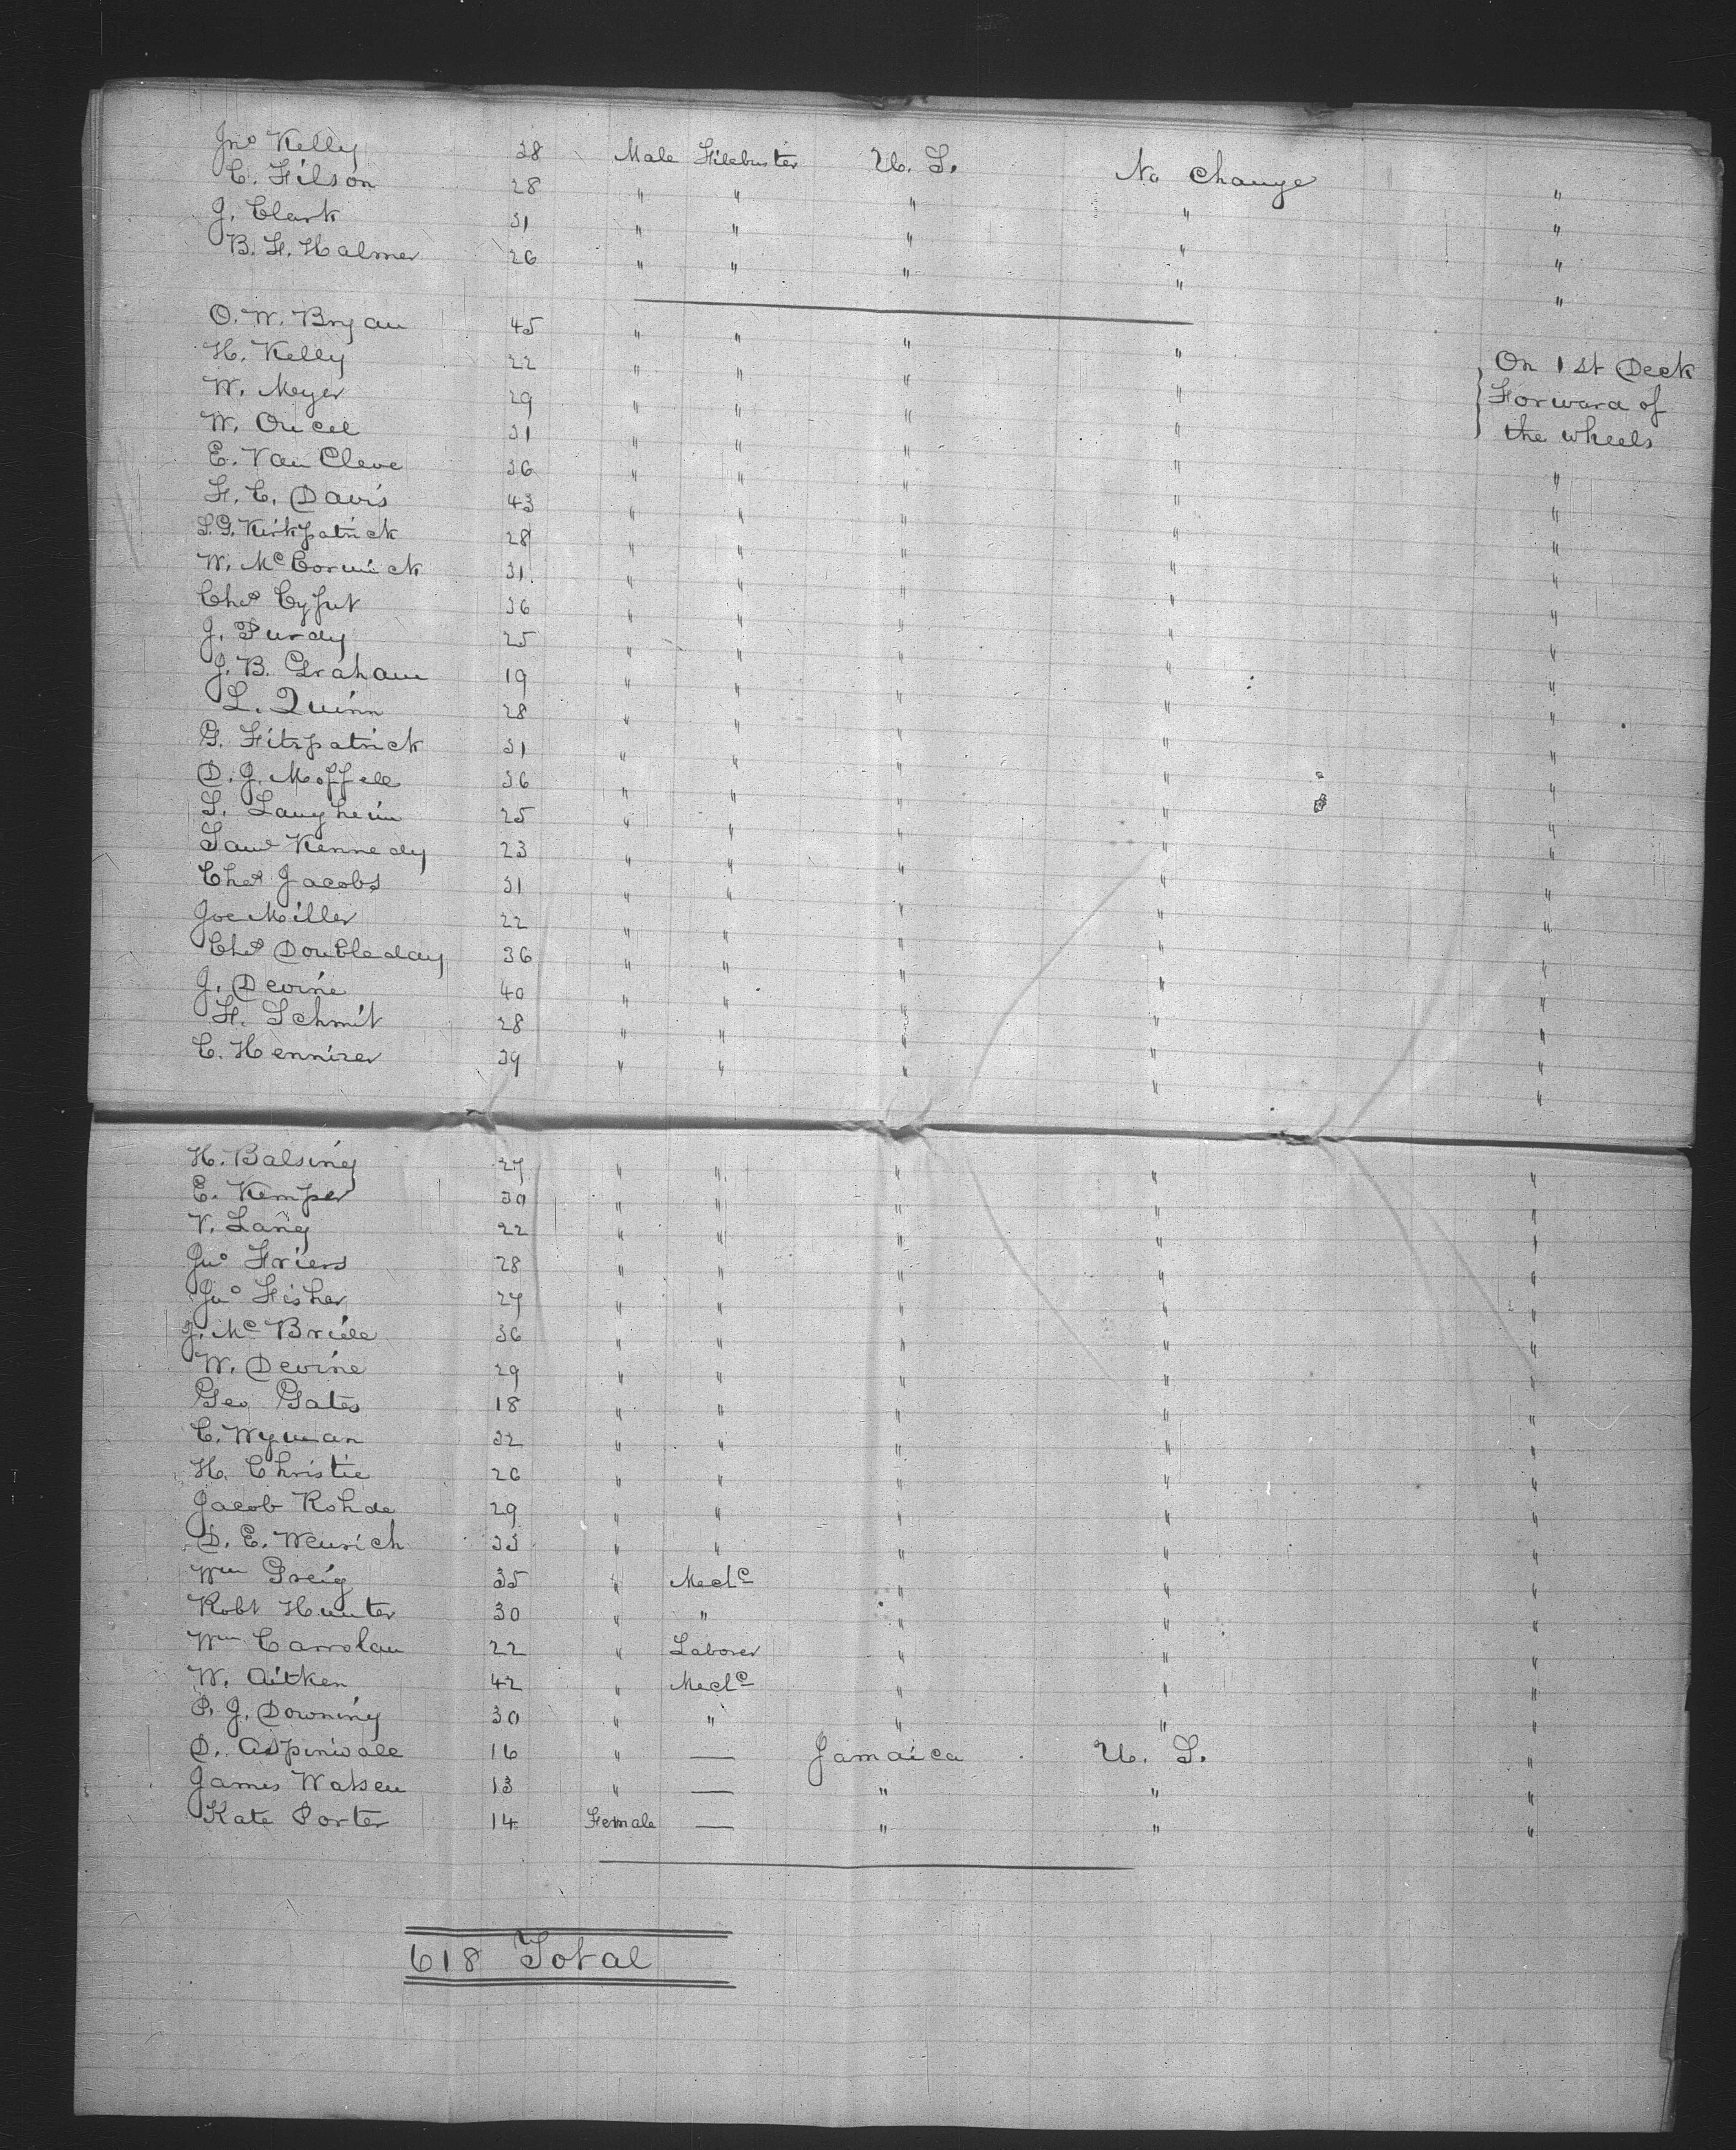 Jno Kelly 38 Male Filebuster U. S. No Change "
C. Filson 28 " " " " "
J. Clark 31 " " " " "
B. F. Halmer 26 " " " " "
O. W. Bryan 45 " " " " On 1st Deck
H. Kelly 22 " " " " Forward of
W. Meyer 29 " " " " the wheels
W. 31 " " " " "
E. Van Cleve 36 " " " " "
F. C. Davis 43 " " " " "
S. G. Kirkpatrick 28 " " " " "
W. McCormick 31 " " " " "
Chas 36 " " " " "
J. Purdy 25 " " " " "
J. B. Graham 19 " " " " "
L. Quinn 28 " " " " "
G. Fitzpatrick 31 " " " " "
D. J. Moffell 36 " " " " "
S. Laugheim 25 " " " " "
Saml Kennedy 23 " " " " "
Chas Jacobs 31 " " " " "
Joe Miller 22 " " " " "
Chas Doubleday 36 " " " " "
J. Devine 40 " " " " "
F. Schmit 28 " " " " "
C. Hennizer 39 " " " " "
H. Balsing 27 " " " " "
E. Kemper 30 " " " " "
V. Lang 22 " " " " "
Jno Friers 28 " " " " "
Jno Fisher 27 " " " " "
J. McBride 36 " " " " "
W. Devine 29 " " " " "
Geo Gates 18 " " " " "
C. Wyman 32 " " " " "
H. Christie 26 " " " " "
Jacob Rohde 29 " " " " "
D. E. Weurich 33 " " " " "
Wm Greig 35 " Mechc " " "
Robt Hunter 30 " " " " "
Wm Carrolan 22 " Laborer " " "
W. Aitken 42 " Mechc " " "
P. J. Downing 30 " " " " "
D. Aspinwall 16 " — Jamaica U. S. "
James Watson 13 " — " " "
Kate Porter 14 Female — " " "
618 Total